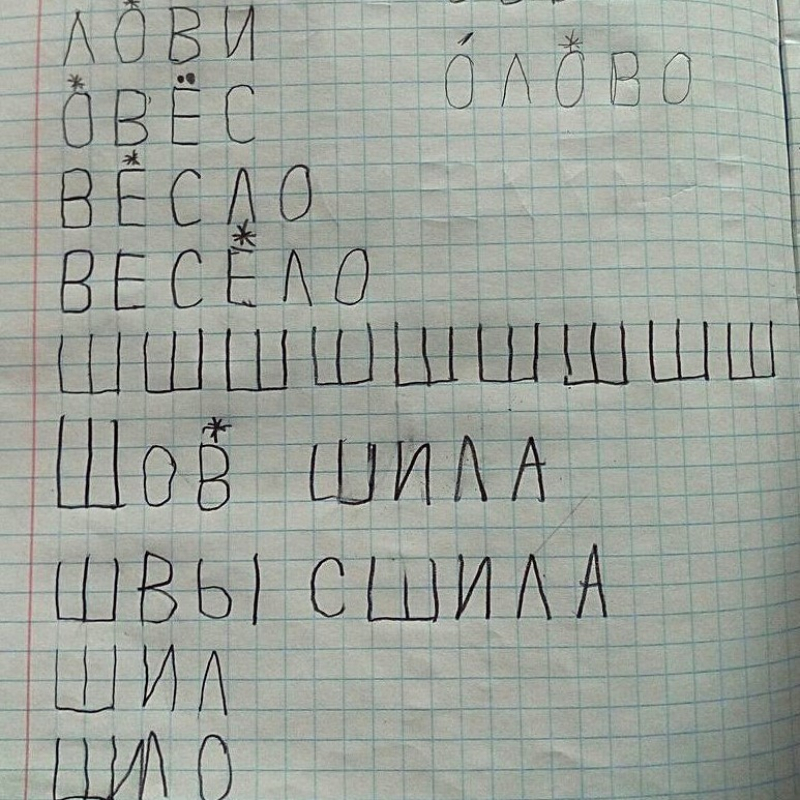 ЛОВИ
ОЛОВО
ОВЁС
ВЕСЛО
ВЕСЕЛО
ШШШШШШШШШ
ШОВ ШИЛА
ШВЫ СШИЛА
ШИЛ
ШИЛО